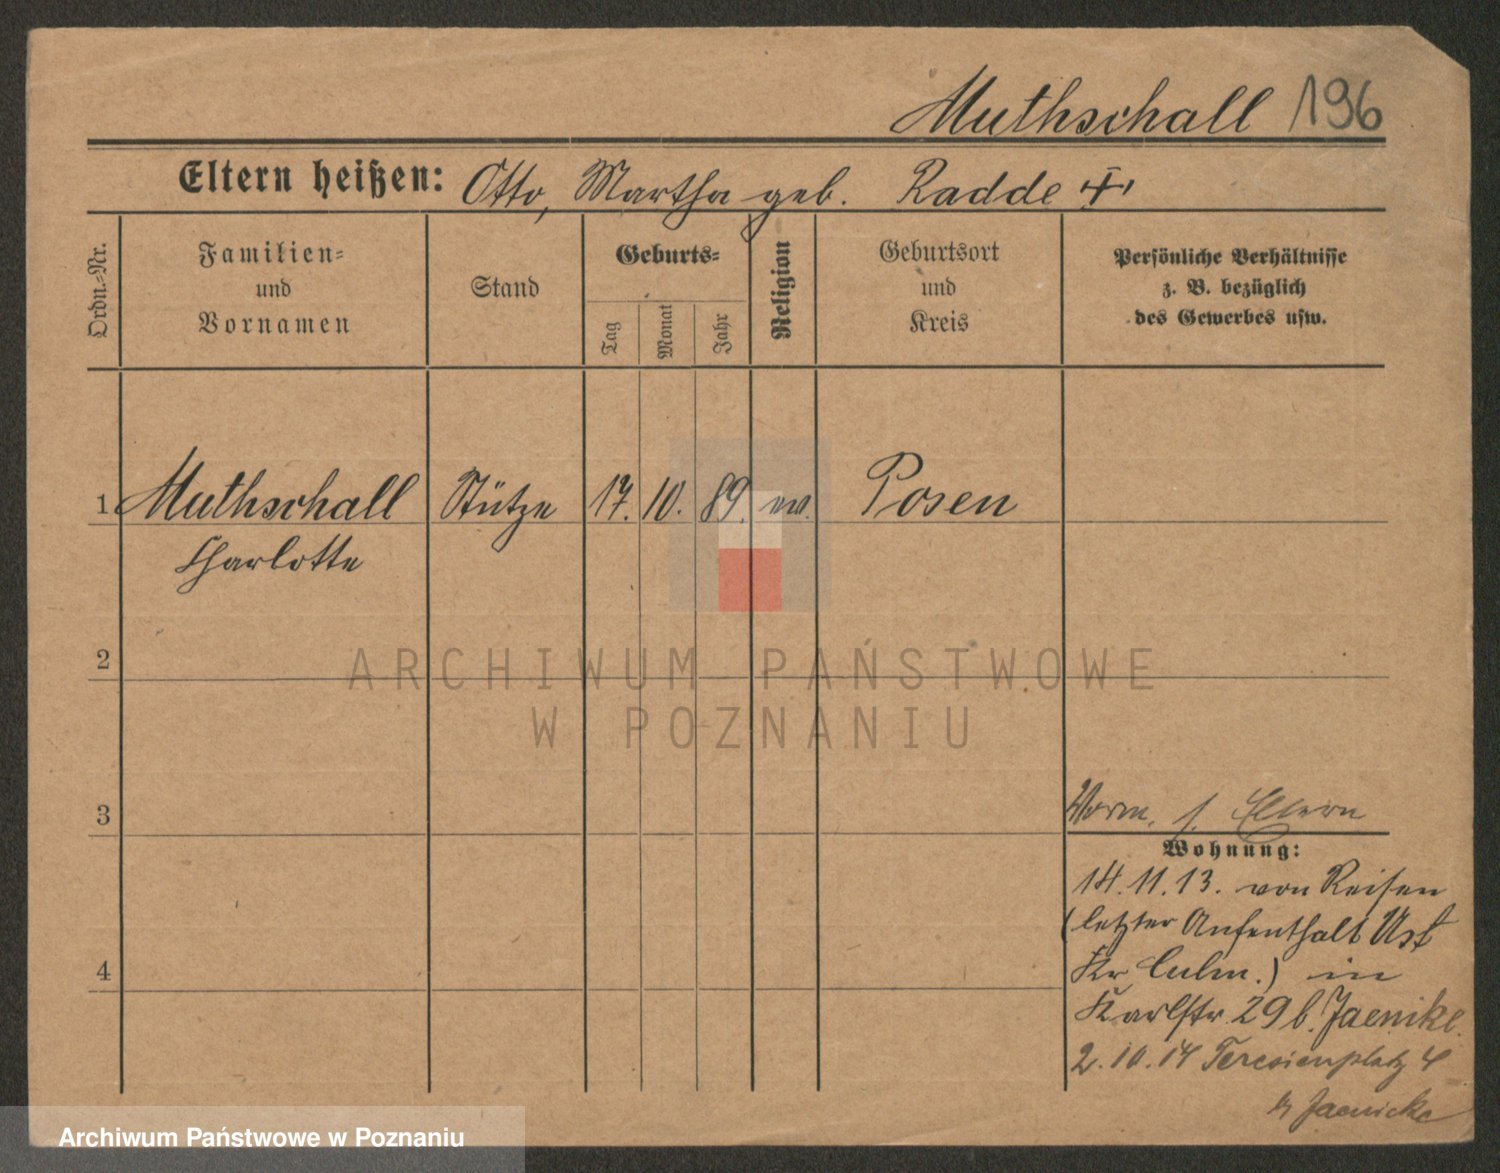 Muthschall 196
Eltern heißen: Otto, Martha geb. Radde
Ordn.-Nr.
Familien- und Vornamen
Stand
Geburts-
Tag
Monat
Jahr
Religion
Geburtsort und Kreis
Persönliche Verhältnisse
z. B. bezüglich
des Gewerbes usw.
1 Muthschall Stütze 17. 10. 89. ev. Posen
Charlotte
2
ARCHIWUM PAŃSTWOWE
W POZNANIU
3
Vorm. s. Eltern
Wohnung:
14.11.13. von Reisen
(letzter Aufenthalt Ust
4
Kr Culm.) in
Karlstr. 29 b. Jaenike.
2.10.14 Teresienplatz 4
b Jaenicke
Archiwum Państwowe w Poznaniu